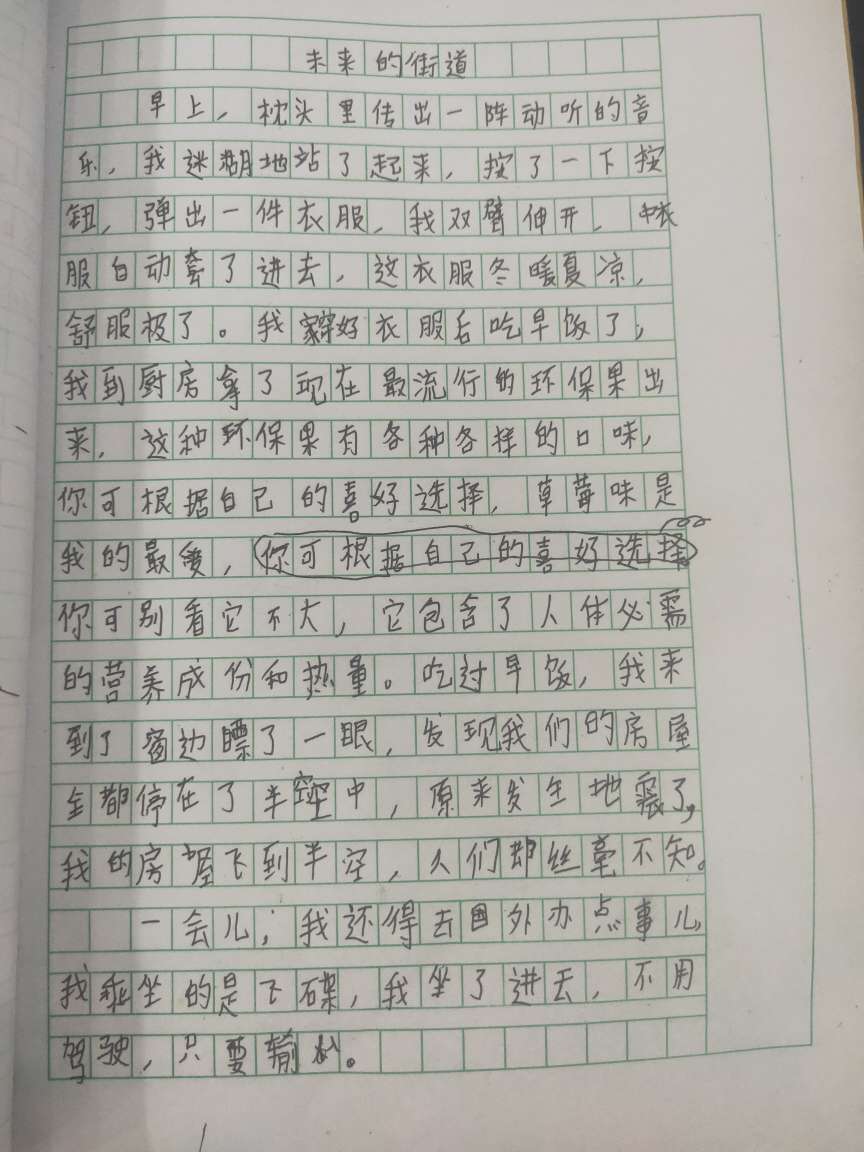 未来的街道
早上，枕头里传出一阵动听的音
乐，我迷糊地站了起来，按了一下按
钮，弹出一件衣服，我双臂伸开，衣
服自动套了进去，这衣服冬暖夏凉，
舒服极了。我穿好衣服后吃早饭了，
我到厨房拿了现在最流行的环保果出
来，这种环保果有各种各样的口味，
你可根据自己的喜好选择，草莓味是
我的最爱，你可根据自己的喜好选择
你可别看它不大，它包含了人体必需
的营养成份和热量。吃过早饭，我来
到了窗边瞟了一眼，发现我们的房屋
全都停在了半空中，原来发生地震了，
我的房屋飞到半空，人们却丝毫不知。
一会儿，我还得去国外办点事儿，
我乘坐的是飞碟，我坐了进去，不用
驾驶，只要输